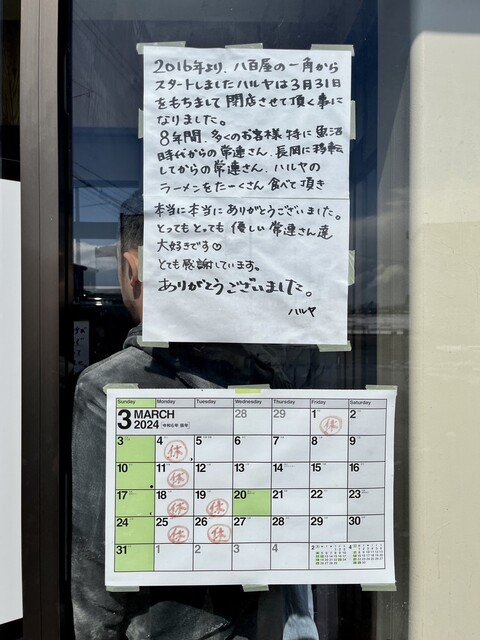 2016年より、八百屋の一角から
スタートしましたハルヤは3月31日
をもちまして閉店させて頂く事に
なりました。
8年間、多くのお客様 特に魚沼
時代からの常連さん、長岡に移転
してからの常連さん、ハルヤの
ラーメンをたーくさん食べて頂き
本当に本当にありがとうございました。
とってもとっても優しい常連さん達
大好きです♡
とても感謝しています。
ありがとうございました。
ハルヤ
Sunday Monday Tuesday Wednesday Thursday Friday Saturday
3 MARCH 2024 令和6年 28 29 1 休 2
3 4 休 5 6 7 8 9
10 11 休 12 13 14 15 16
17 18 休 19 休 20 21 22 23
24 25 休 26 休 27 28 29 30
31 1 2 3 4